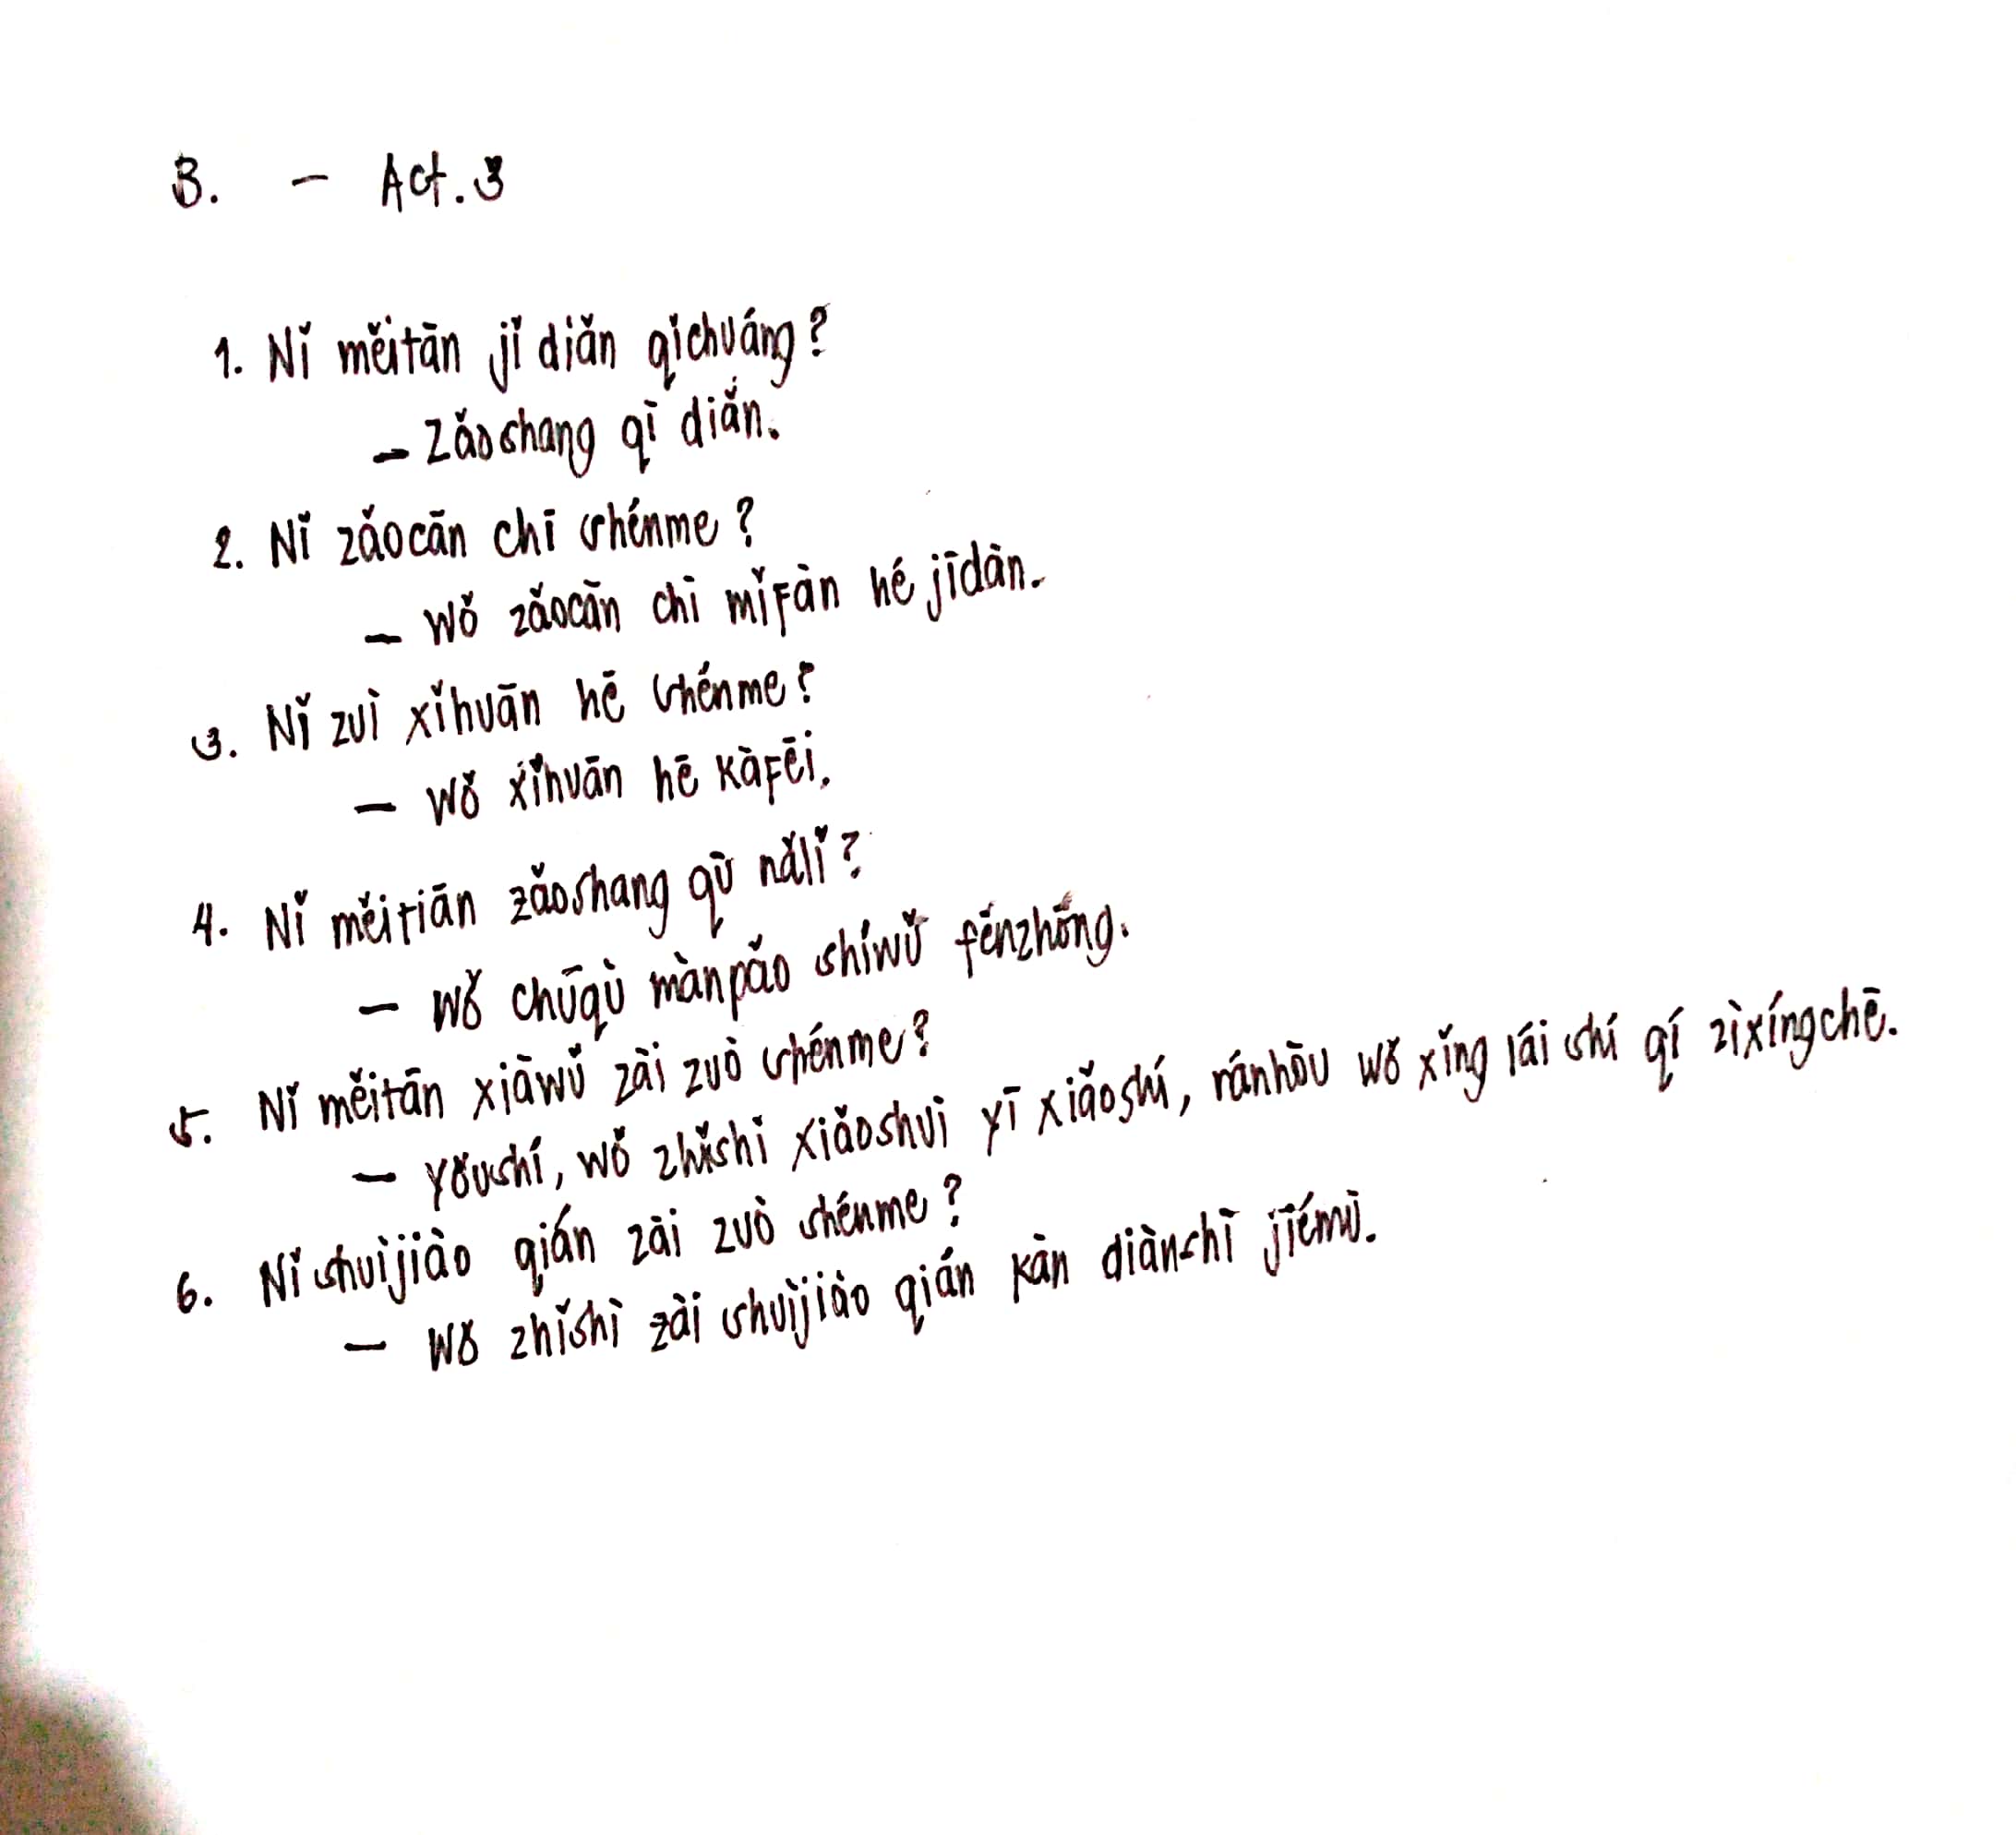 B. - Act. 3
1. Nǐ měitān jǐ diǎn qǐchuáng?
- Zǎoshang qī diǎn.
2. Nǐ zǎocān chī shénme?
- Wǒ zǎocān chī mǐfàn hé jīdàn.
3. Nǐ zuì xǐhuān hē shénme?
- Wǒ xǐhuān hē kāfēi.
4. Nǐ měitiān zǎoshang qù nǎlǐ?
- Wǒ chūqù mànpǎo shíwǔ fēnzhōng.
5. Nǐ měitān xiàwǔ zài zuò shénme?
- Yǒushí, wǒ zhǐshì xiǎoshuì yī xiǎoshí, ránhòu wǒ xǐng lái shí qí zìxíngchē.
6. Nǐ shuìjiào qián zài zuò shénme?
- Wǒ zhǐshì zài shuìjiào qián kàn diànshì jiémù.